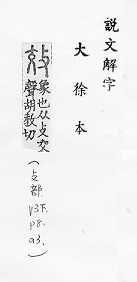 說文解字
大徐本
效
象也从攴交
聲胡教切
(攴部
V3下.
P8.
a3.)